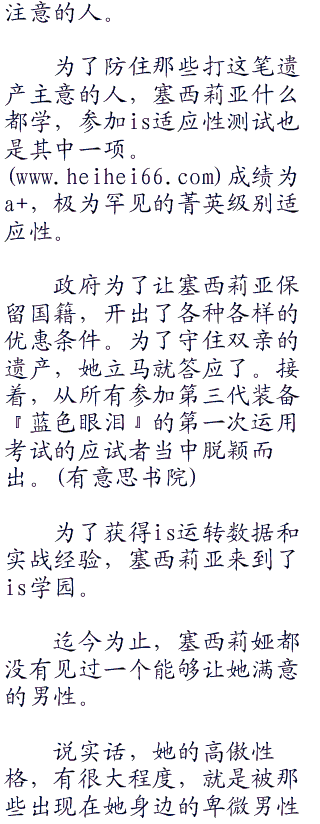 注意的人。
为了防住那些打这笔遗
产主意的人，塞西莉亚什么
都学，参加is适应性测试也
是其中一项。
(www.heihei66.com)成绩为
a+，极为罕见的菁英级别适
应性。
政府为了让塞西莉亚保
留国籍，开出了各种各样的
优惠条件。为了守住双亲的
遗产，她立马就答应了。接
着，从所有参加第三代装备
『蓝色眼泪』的第一次运用
考试的应试者当中脱颖而
出。(有意思书院)
为了获得is运转数据和
实战经验，塞西莉亚来到了
is学园。
迄今为止，塞西莉娅都
没有见过一个能够让她满意
的男性。
说实话，她的高傲性
格，有很大程度，就是被那
些出现在她身边的卑微男性